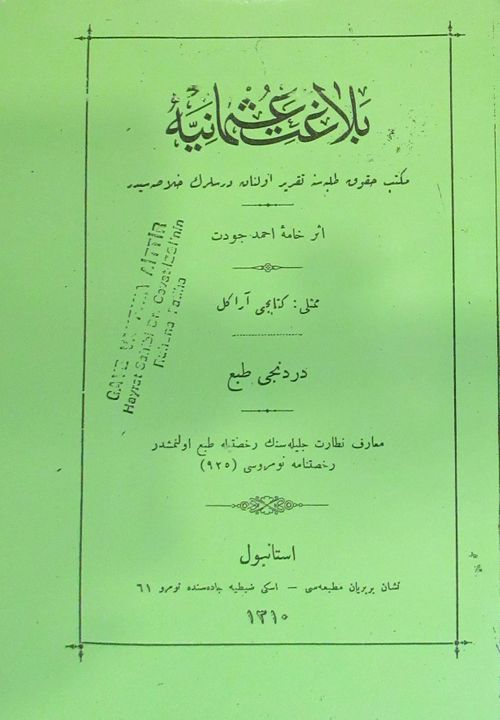 بلاغت عثمانیه
مکتب حقوق طلبه سنه تقریر اولنان درسلرك خلاصه سیدر
اثر خامهٔ احمد جودت
ممثلی: کتابجی آراکل
دردنجی طبع
معارف نظارت جلیله سنك رخصتیله طبع اولنمشدر
رخصتنامه نومروسی (٩٢٥)
استانبول
نشان بربریان مطبعه سی – اسکی ضبطیه جاده سنده نومرو ٦١
١٣١٠
GAYE VAKFINA AİTTİR
Hayrat Sahibi Dr. Cevat İzgi'nin
Ruhuna Fatiha